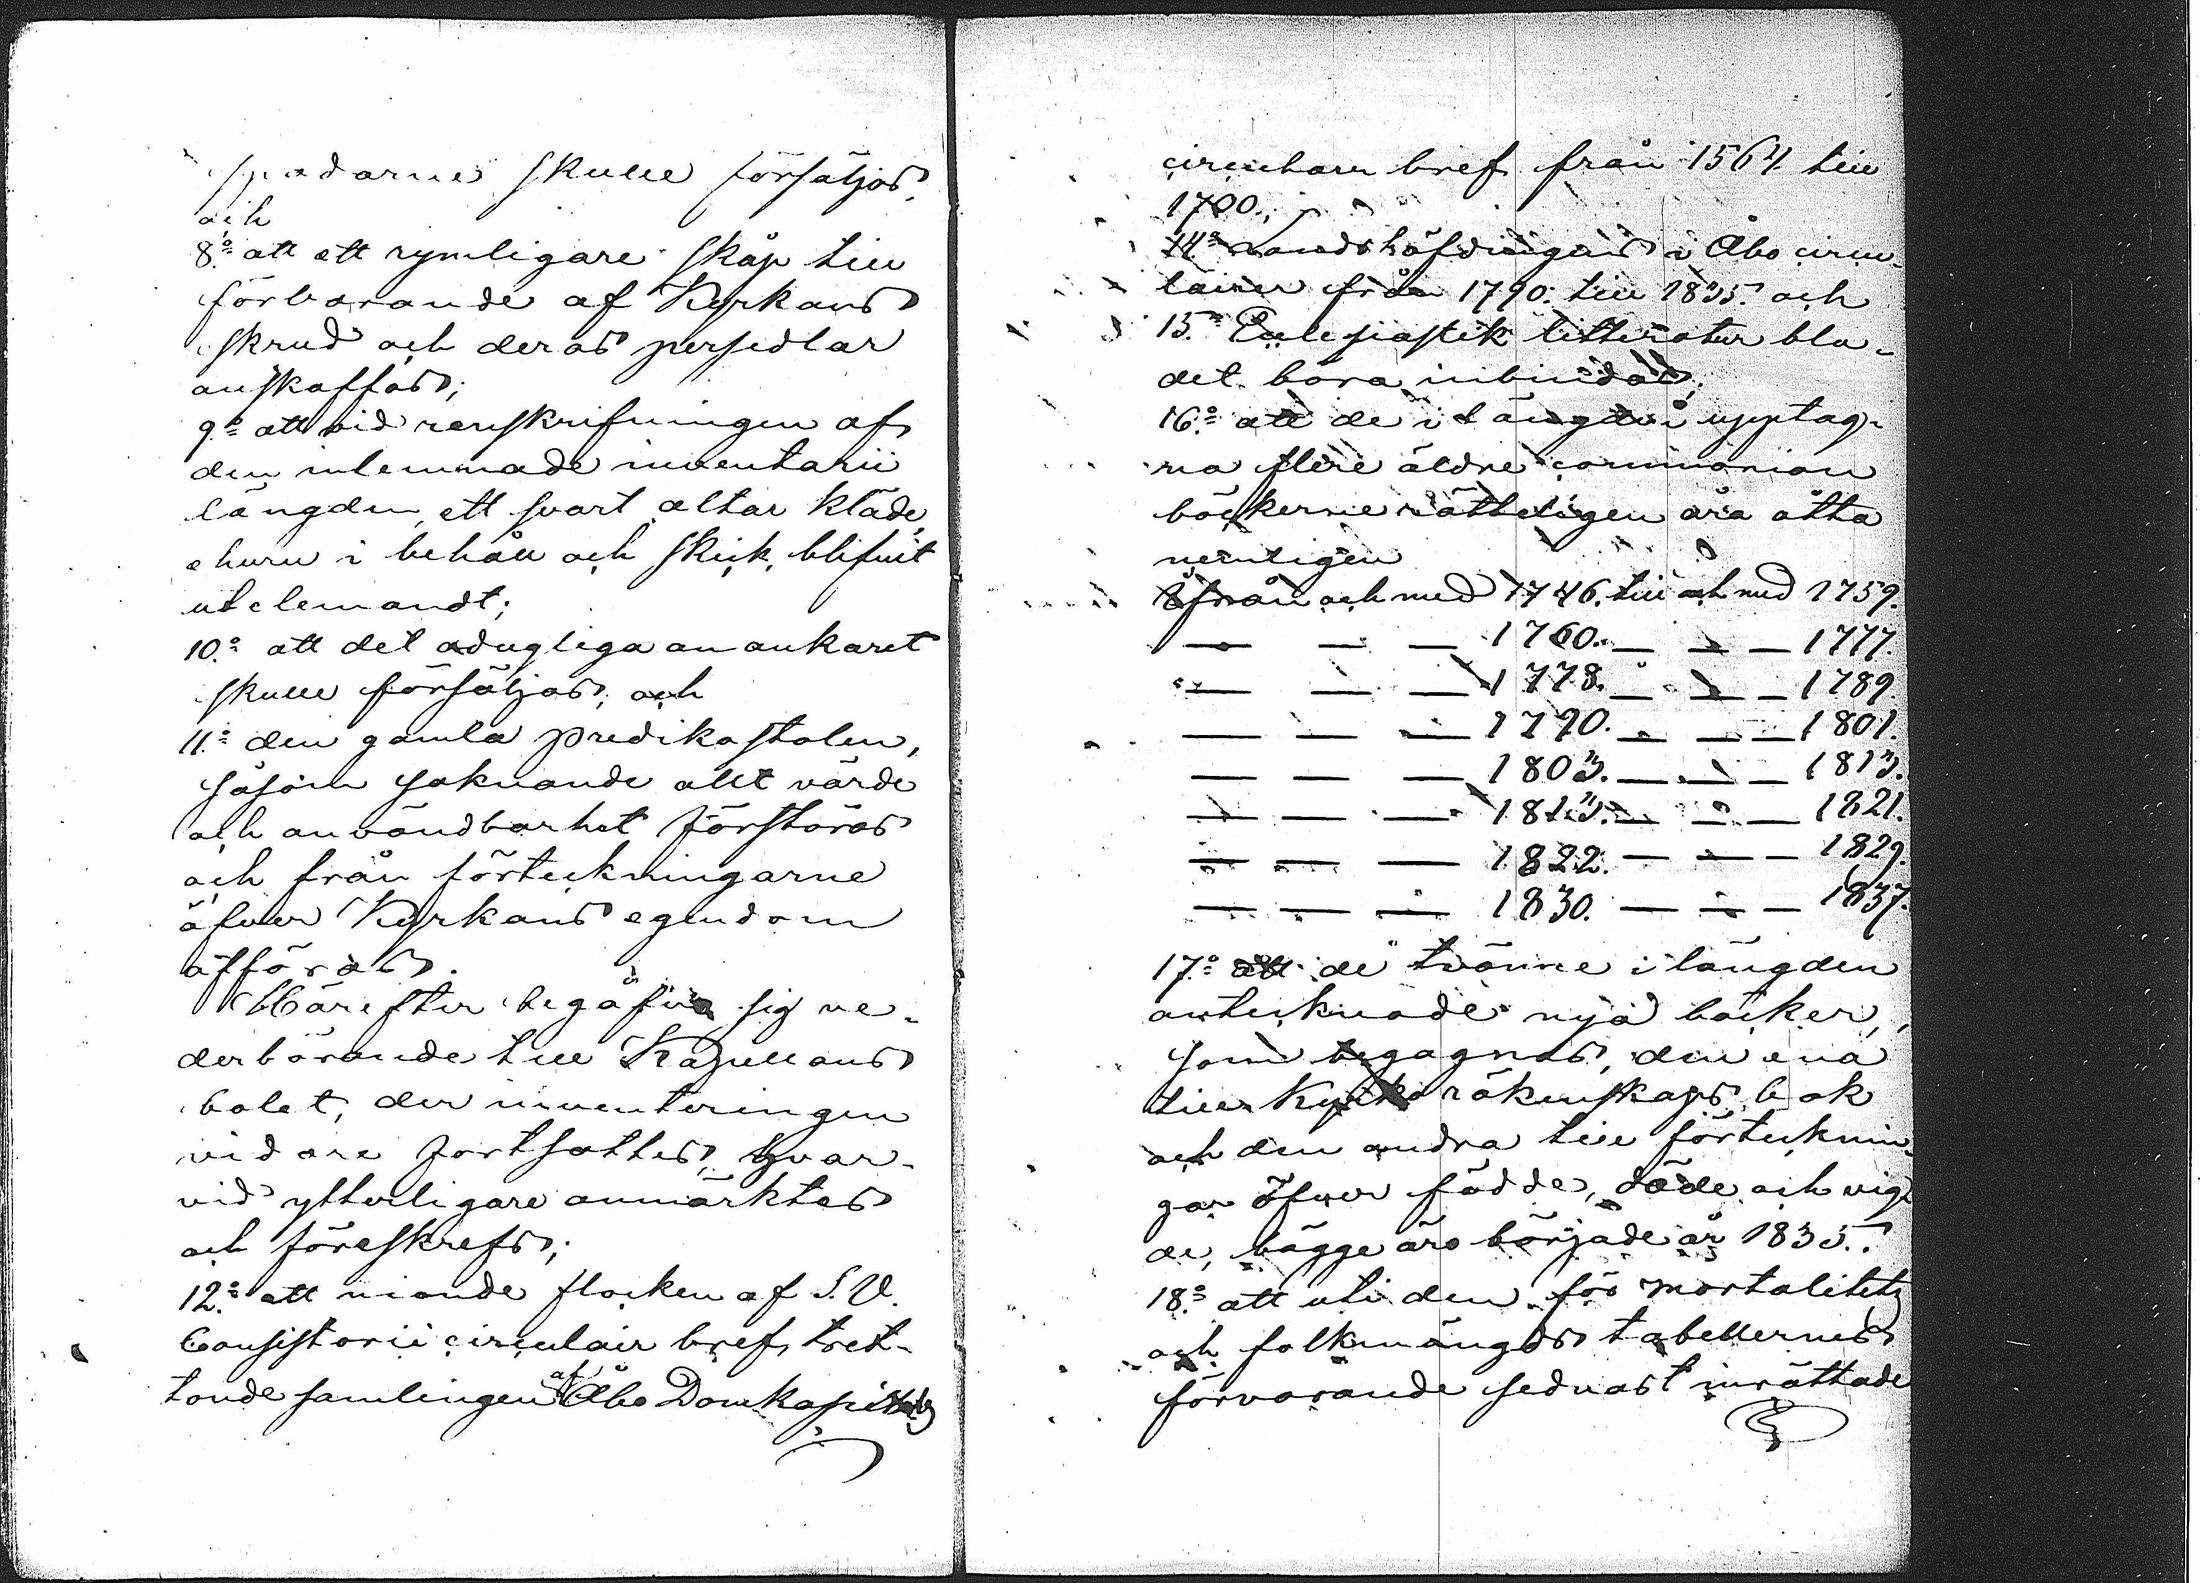 spadarne skulle försäljas,
och
8:o att ett rymligare skåp till
förvarande af Kyrkans
skrud och deras persedlar
anskaffas;
9:o att vid renskrifningen af
den inlemnade inventarii
längden, ett svart altar kläde,
ehuru i behåll och skick, blifvit
utelemnadt;
10:o att det odugliga an ankaret
skulle försäljas, och
11:o den gamla predikostolen,
såsom saknande allt värde
och användbarhet förstöras
och från förteckningarne
öfver Kyrkans egendom
afföras.
Härefter begåfvo sig ve-
derbörande till Kapellans
bolet, der inventeringen
vidare fortsattes, hvar-
vid ytterligare anmärktes
och föreskrefs;
12:o att nionde flocken af S. V.
Consistorii circulair bref, tret-
tonde samlingen af Åbo Domkapitels
circulaire bref från 1564 till
1700.;
14:o Landshöfdingens i Åbo circu-
lairer från 1790. till 1835. och
15:o Ecclesiastik litteratur bla-
det böra inbindas;
16:o att de i längden upptag-
na flere äldre communion
böckerne rätteligen äro åtta
nemligen
från och med 1746. till och med 1759.
— — — 1760. — — — 1777.
— — — 1778. — — — 1789.
— — — 1790. — — — 1801.
— — — 1803. — — — 1813.
— — — 1813. — — — 1821.
— — — 1822. — — — 1829.
— — — 1830. — — — 1837.
17:o att de tvänne i längden
antecknade nya böcker,
som begagnas, den ena
till Kyrko räkenskaps bok
och den andra till förtecknin-
gar öfver födde, döde och vig-
de, bägge äro började år 1835.
18:o att uti den för mortalitets
och folkmängds tabellernes
förvarande sednast inrättade